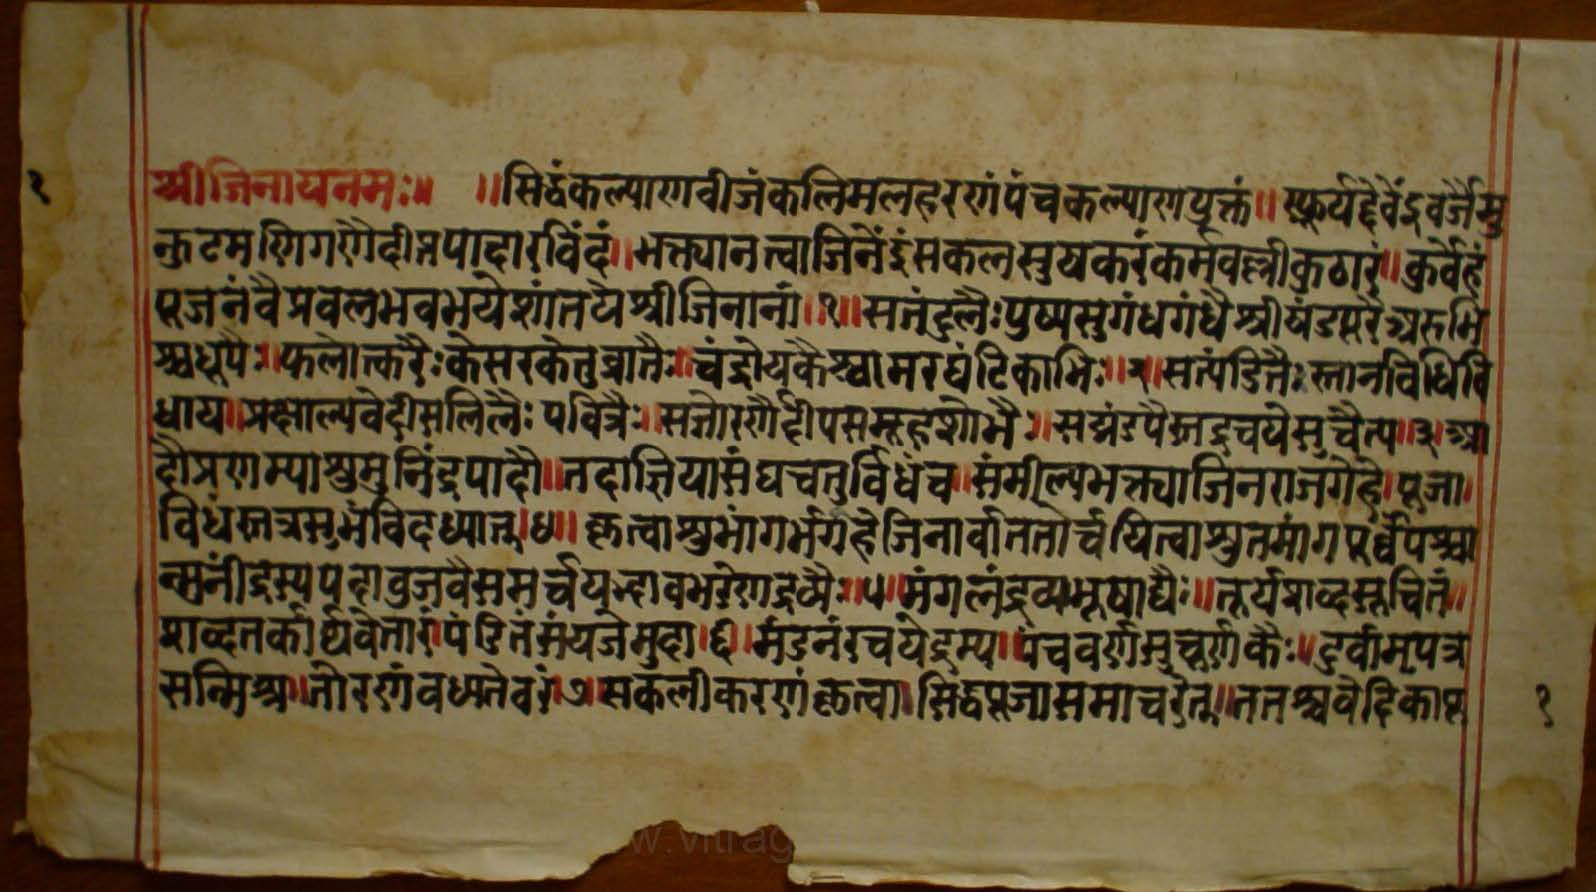 १
श्रीजिनायनमः॥ ॥सिद्धंकल्याणवीजंकलिमलहरणंपंचकल्याणयुक्तं॥ स्फूर्यद्देवेंद्रवर्जैमु
कुटमणिगणैदीप्तपादारविंदं॥भक्त्यानत्वाजिनेंद्रंसकलसुयकरंकर्मवल्लीकुठारं॥कुर्वेहं
पूजनंवैप्रवलभवभयेशांतयेश्रीजिनानां।१॥सतंदुलैःपुष्पसुगंधगंधैश्रीयंडपूरैश्चरुभि
श्चधूपैः॥फलोत्करैःकेसरकेतुव्रातैः॥चंद्रोयकैश्चामरघंटिकाभिः॥२॥सत्पंडितैःस्नानविधिवि
धाय॥प्रक्षाल्यवेदीसलिलैःपवित्रैः॥सत्तोरणैर्द्दीपसमूहशोभैः॥सन्मंडपैस्तद्रचयेसुचैत्य॥३॥आ
दौप्रणम्याशुमुनिंद्रपादौ॥तदाज्ञियासंघचतुर्विधंच॥संमील्यभक्त्याजिनराजगेहे।पूजा।
विधंस्तत्रसुभंविदध्यात्।४॥कृत्वाशुभांगर्भगृहेजिनार्वाततोर्चयित्वाश्रुतमांगपूर्वंपश्चा
न्मुनींद्रस्यपदावुजवैसमर्च्चयेद्भावभरेणद्रव्यैः॥५॥मंगलंद्रव्यभूषाद्यैः॥तूर्यशब्दसूचितं॥
शब्दतर्कार्थवेत्तारंपंडितंसंयजेमुदा।६॥मंडनंरचयेद्रम्य।पंचवर्णसुचूर्णकैः॥दुर्वामृपत्र
सन्मिश्र॥तोरणंवध्यतेवरं।७॥सकलीकरणंकृत्वा।सिद्धपूजासमाचरेत्॥ततश्चवेदिकापू
१